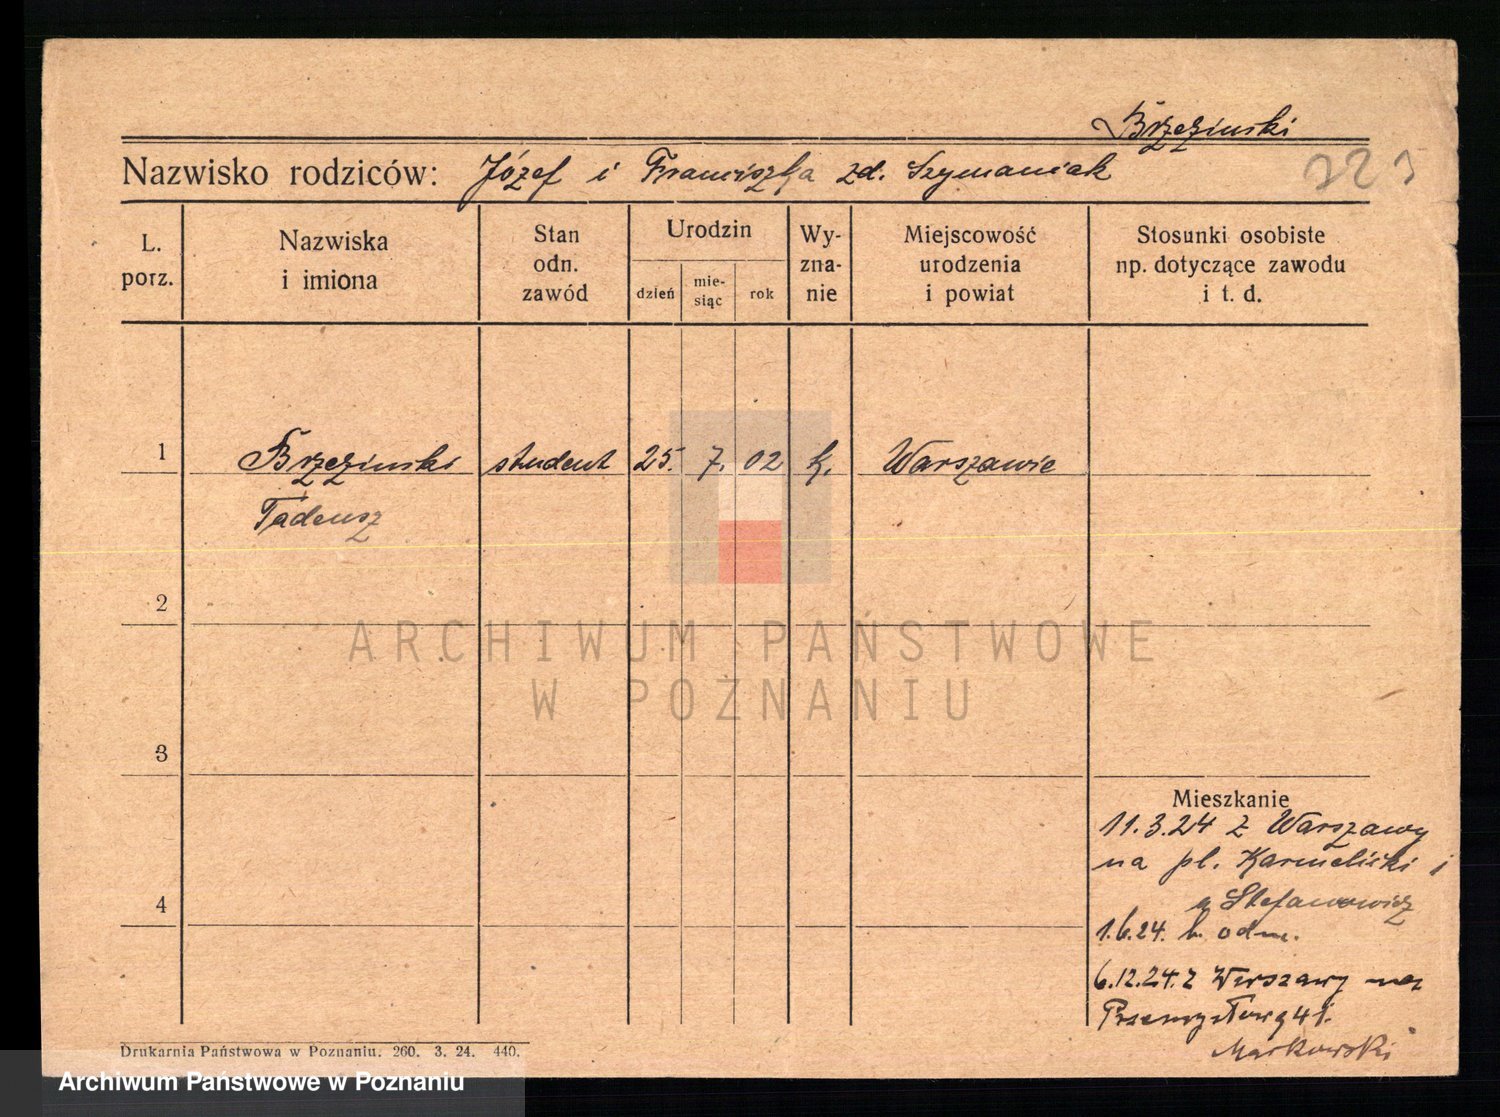 Brzezinski
Nazwisko rodziców: Józef i Franciszka zd. Szymaniak
223
L. porz.
Nazwiska i imiona
Stan odn. zawód
Urodzin
dzień
mie-siąc
rok
Wy-zna-nie
Miejscowość urodzenia i powiat
Stosunki osobiste np. dotyczące zawodu i t. d.
1 Brzezinski student 25. 7. 02 k. Warszawie
Tadeusz
2
ARCHIWUM PAŃSTWOWE
W POZNANIU
3
Mieszkanie
11.3.24 z Warszawy
na pl. Karmelicki 1
u Stefanowicz
4
1.6.24. b. odm.
6.12.24. z Warszawy na
Przemysłową 41.
Markowski
Drukarnia Państwowa w Poznaniu. 260. 3. 24. 440.
Archiwum Państwowe w Poznaniu